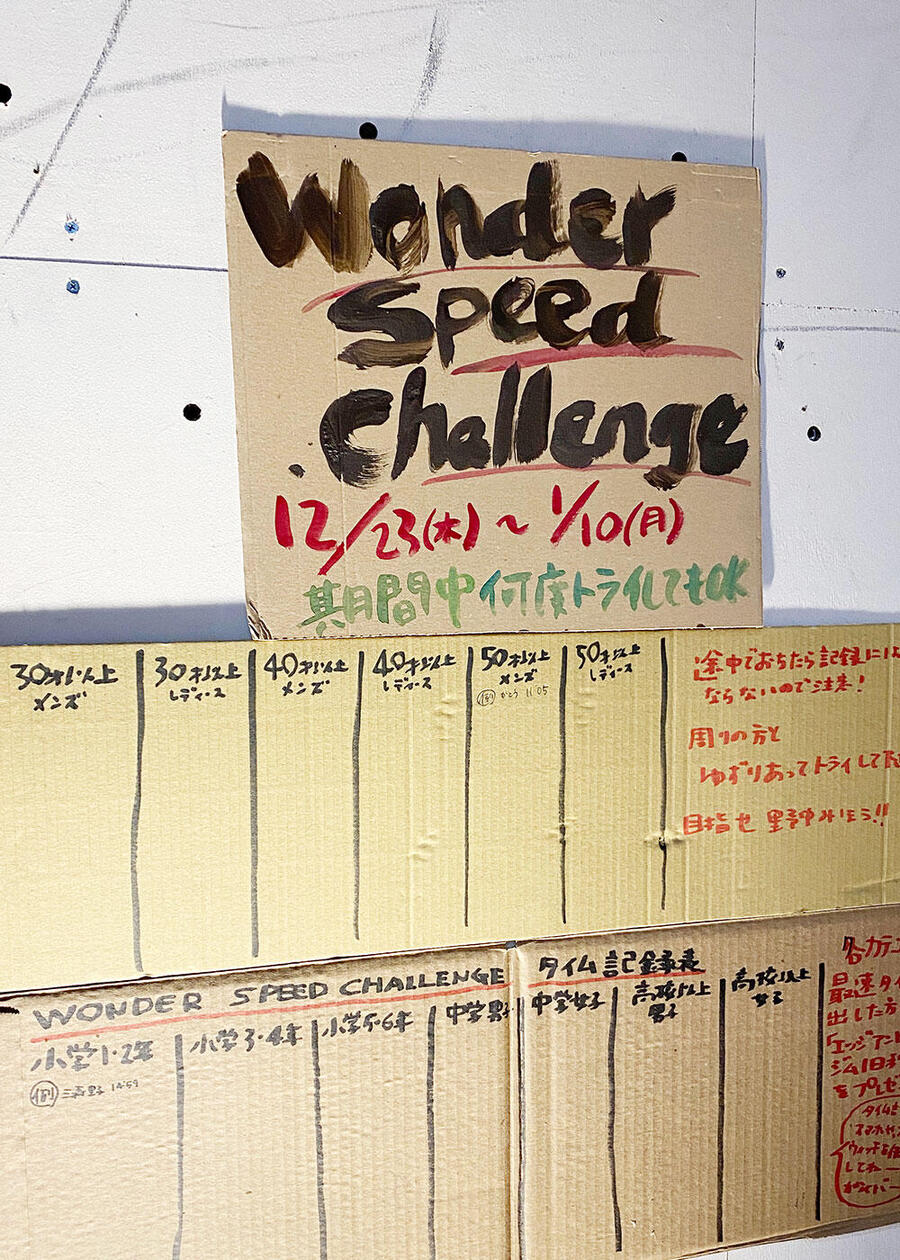 Wonder
Speed
Challenge
12/23(木)～1/10(月)
期間中何度トライしてもOK
30才以上
メンズ
30才以上
レディース
40才以上
メンズ
40才以上
レディース
50才以上
メンズ
例 かとう 11:05
50才以上
レディース
途中でおちたら記録には
ならないので注意!
周りの方と
ゆずりあってトライして
目指せ 野中みほう!!
WONDER SPEED CHALLENGE
タイム記録表
小学1・2年
例
14:59
小学3・4年
小学5・6年
中学男子
中学女子
高校以上
男子
高校以上
女子
各カテゴ
最速タイ
出した方
「エッジアンド
ジム1日利
をプレゼ
タイムを
ウォッチを
してねー